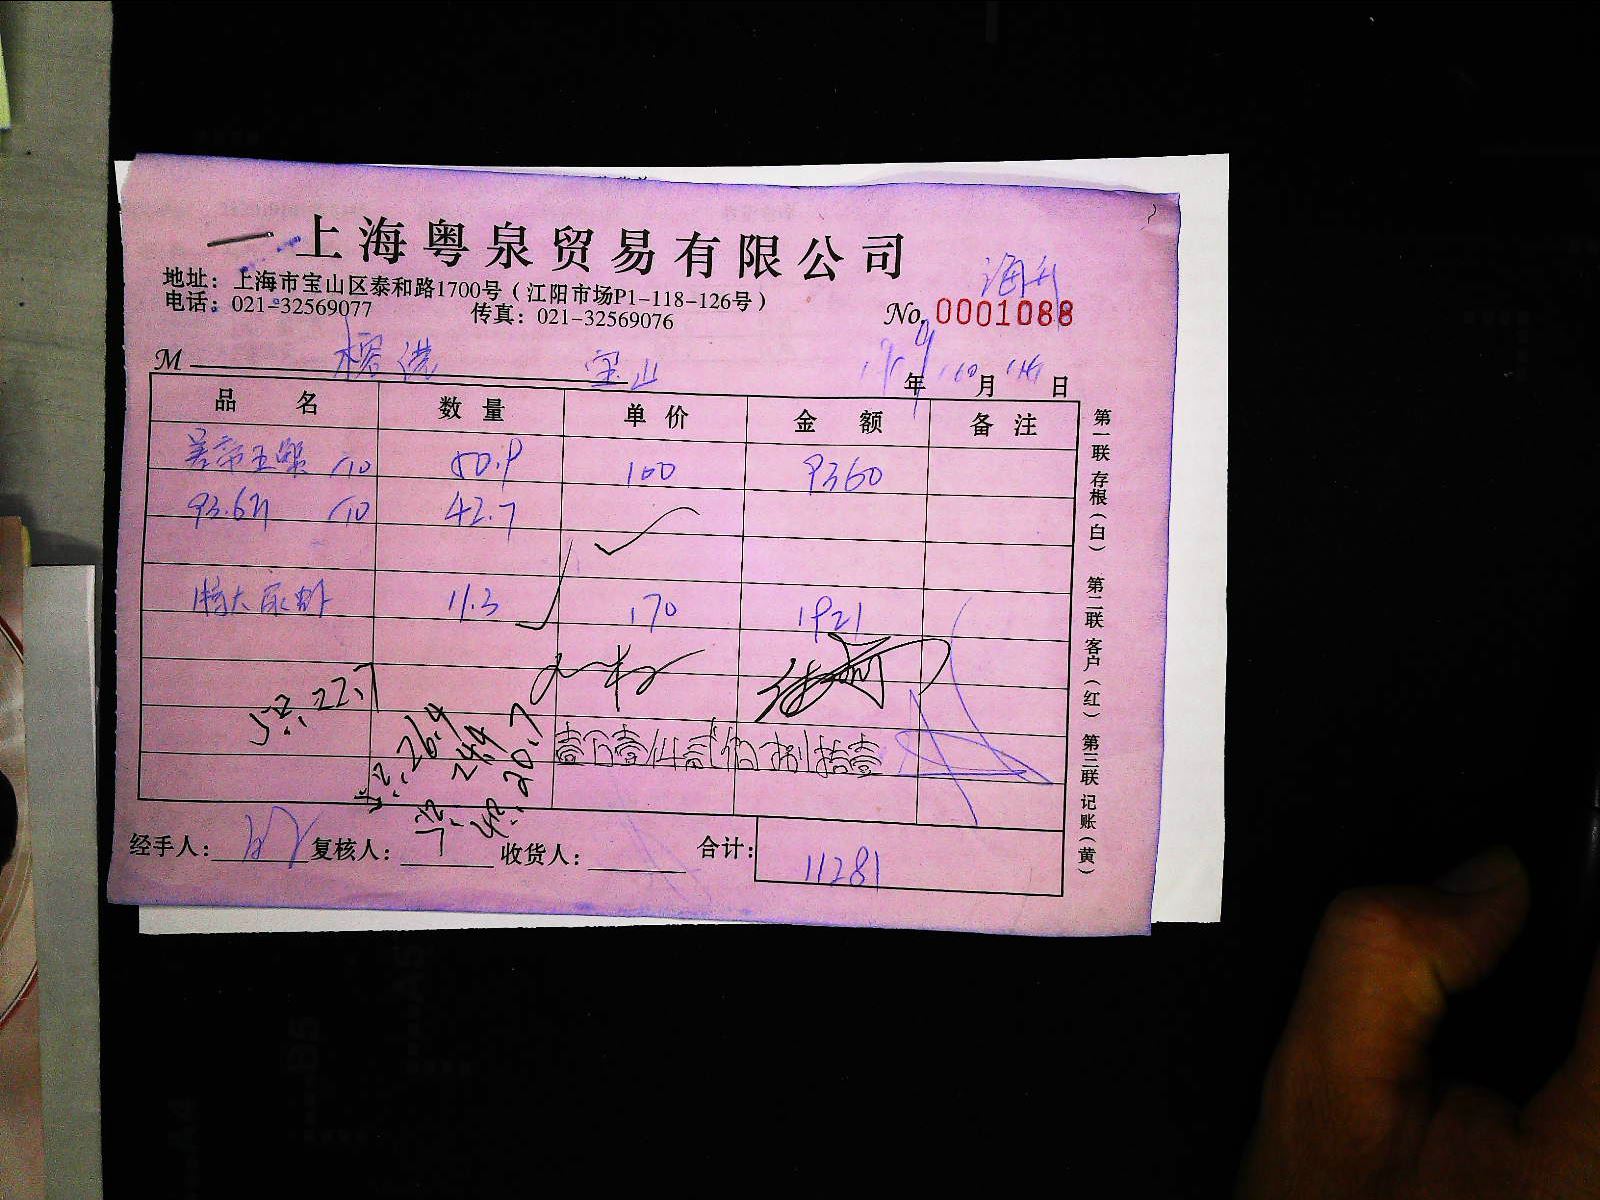 上海粤泉贸易有限公司
地址：上海市宝山区泰和路1700号（江阳市场P1-118-126号）
电话：021-32569077 传真：021-32569076
No. 0001088
M 宝山 年 月 日
品名 数量 单价 金额 备注
/10 50.9 100 9360
93.6斤 /10 42.7
特大 11.3 170 1921
52. 22.7
52. 26.4
24.4
52. 42. 20.7
壹万壹仟贰佰捌拾壹
经手人： 复核人： 收货人： 合计： 11281
第一联 存根（白） 第二联 客户（红） 第三联 记账（黄）